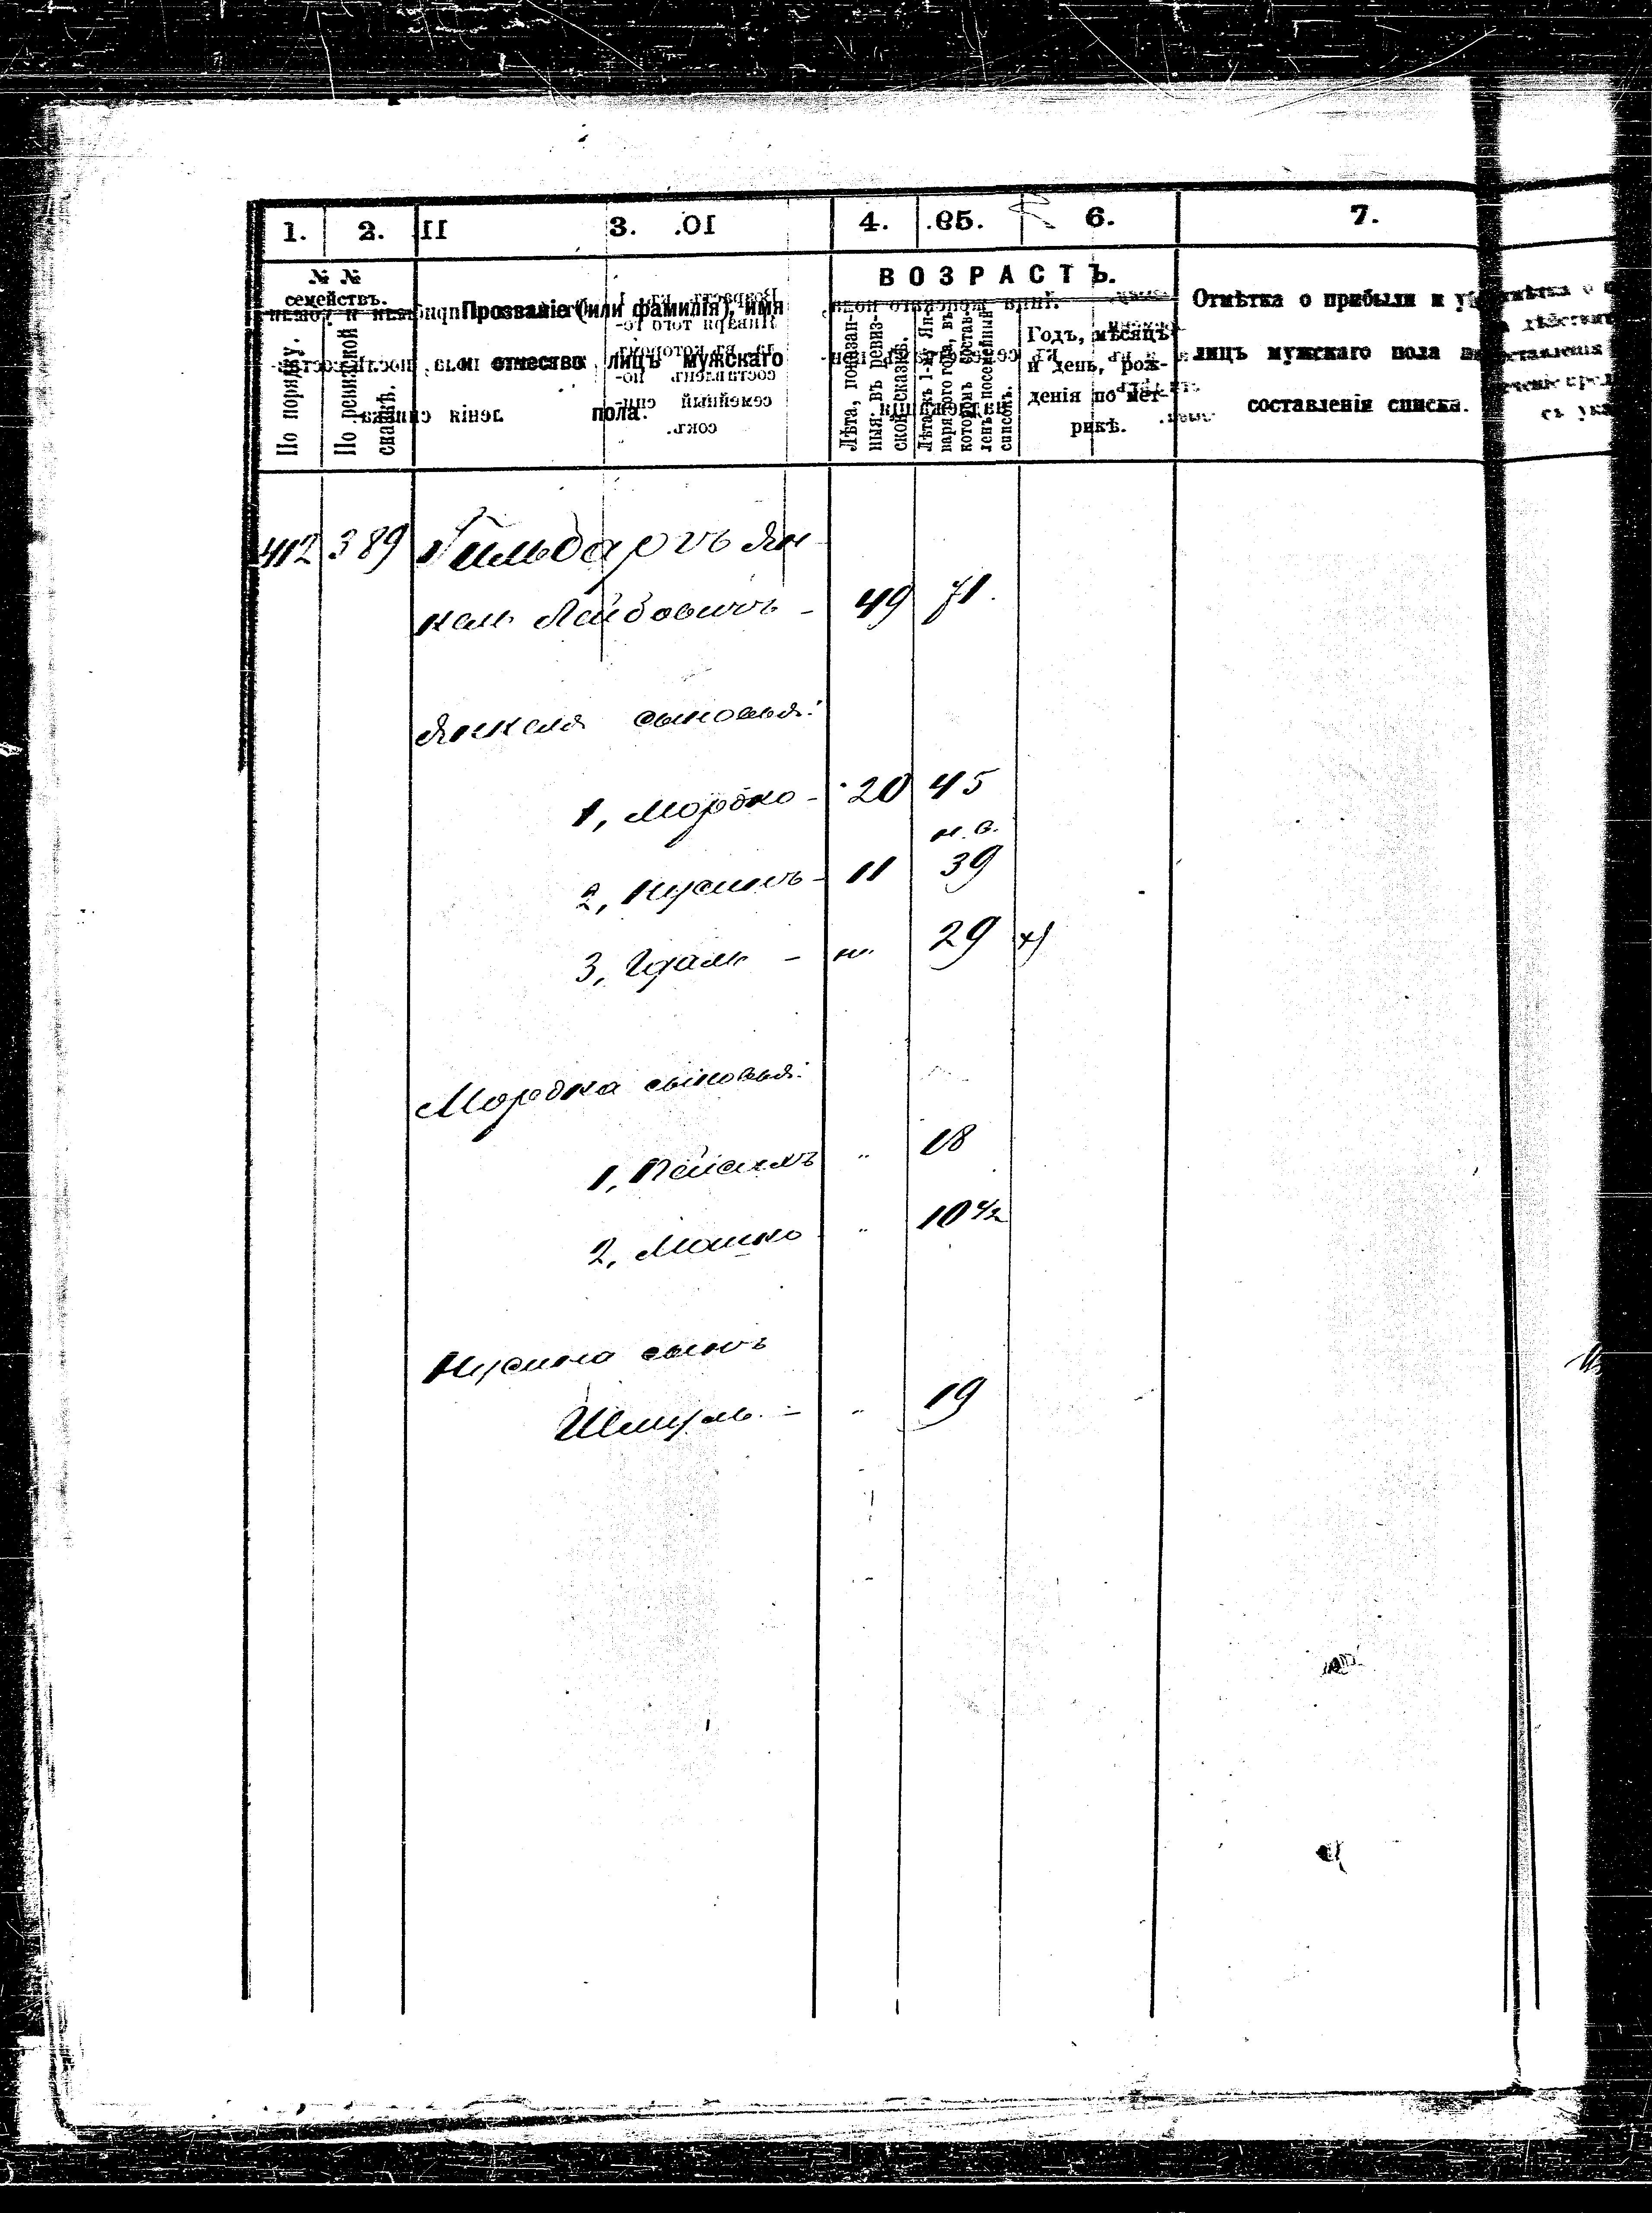 1. 2. 3. 4. 5. 6. 7.
№ №
семействъ.
По порядку.
По ревизской
сказкѣ.
Прозваніе (или фамилія), имя
и отчество лицъ мужскаго
пола.
ВОЗРАСТЪ.
Лѣта, показан-
ныя въ ревиз-
ской сказкѣ.
Лѣта къ 1-му Ян-
варя того года, въ
которомъ состав-
ленъ посемейный
списокъ.
Годъ, мѣсяцъ
и день, рож-
денія по мет-
рикѣ.
Отмѣтка о прибыли и
лицъ мужскаго пола
составленія списка.
412 389 Гильбаръ Ян-
кель Лейбовичъ - 49 71.
Янкеля сыновья:
1, Мордко - 20 45
н. в.
2, Нусинъ - 11 39
3, Гдаль - н. 29 х)
Мордка сыновья:
1, Пейсахъ " 18
2, Мошко " 10 1/2
Нусина сынъ
Шмуль - " 19